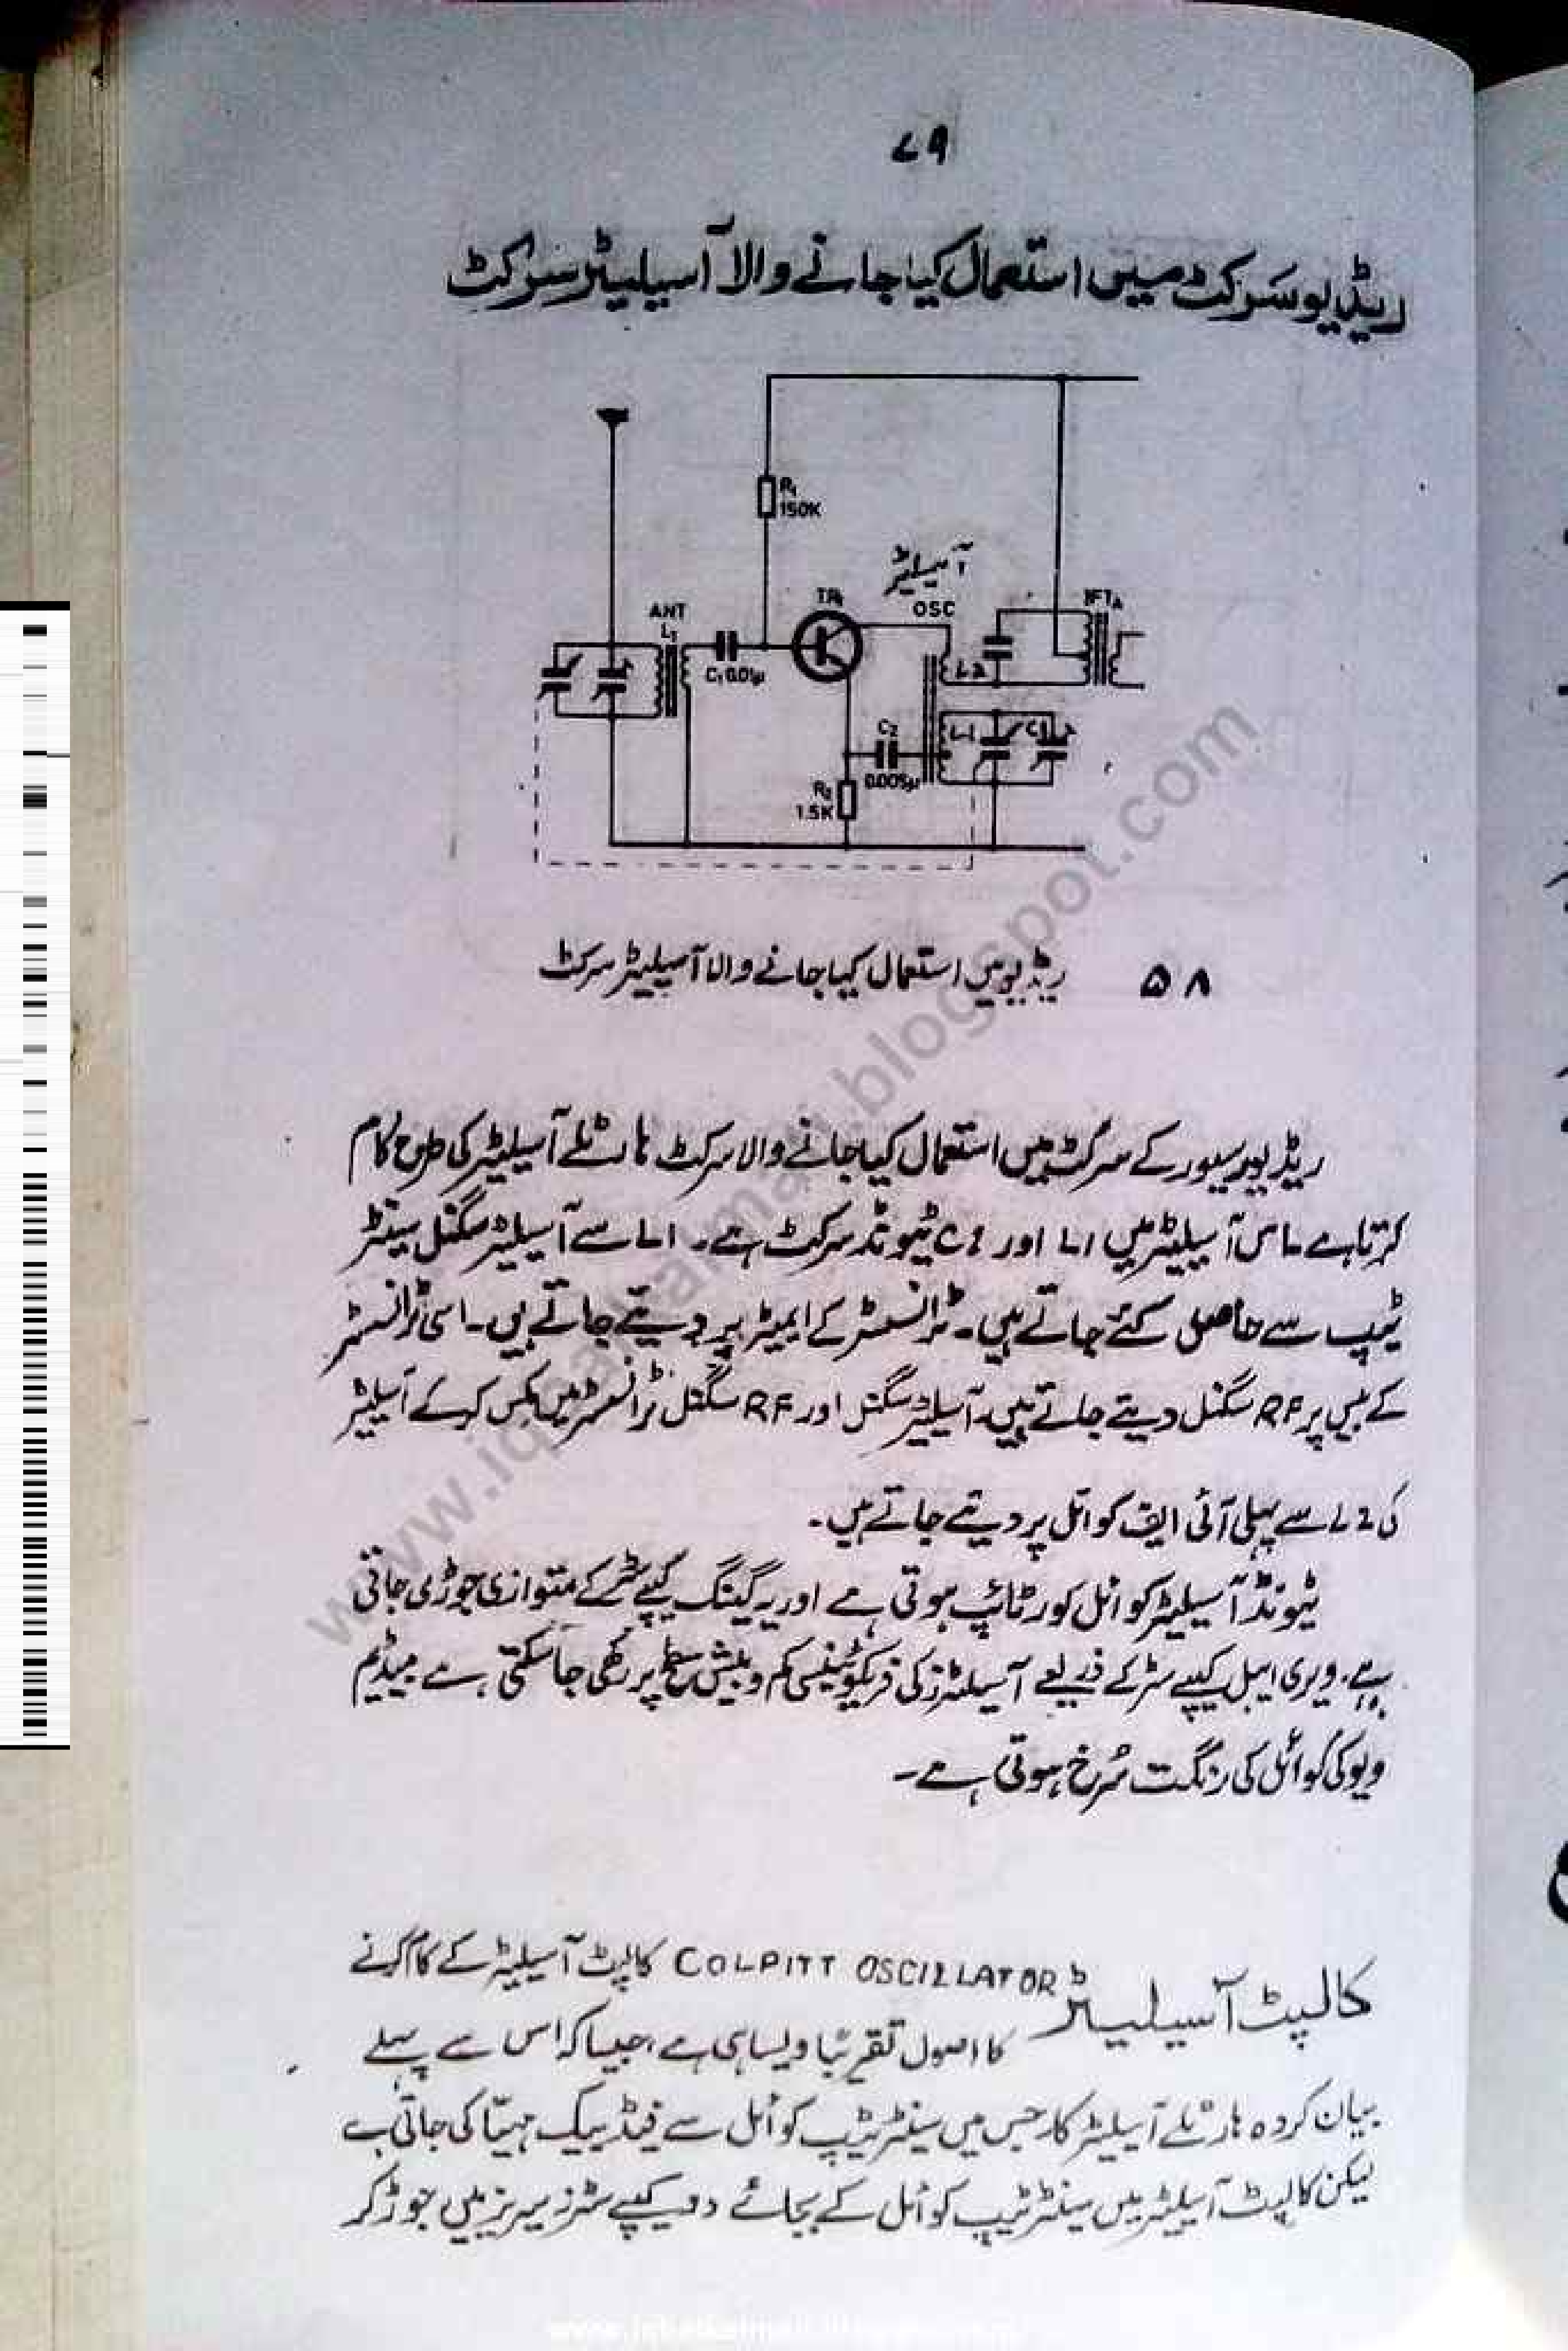 ۷۹
ریڈیو سرکٹ میں استعمال کیا جانے والا آسیلیٹر سرکٹ
R1
150K
آسیلیٹر
TR1
OSC
IFTA
ANT
L1
C1 0.01μ
L2
C2
0.005μ
L1
C1
R2
1.5K
۵۸ ریڈیو میں استعمال کیا جانے والا آسیلیٹر سرکٹ
ریڈیو رسیور کے سرکٹ میں استعمال کیا جانے والا سرکٹ ہارٹلے آسیلیٹر کی طرح کام
کرتا ہے ۔ اس آسیلیٹر میں L1 اور C1 ٹیونڈ سرکٹ ہے۔ L1 سے آسیلیٹر سگنل سینٹر
ٹیپ سے حاصل کئے جاتے ہیں۔ ٹرانسسٹر کے ایمیٹر پر دیئے جاتے ہیں۔ اسی ٹرانسسٹر
کے بیس پر RF سگنل دیئے جاتے ہیں۔ آسیلیٹر سگنل اور RF سگنل ٹرانسسٹر میں مکس کر کے آسیلیٹر
کی L2 سے پہلی آئی ایف کوائل پر دیئے جاتے ہیں۔
ٹیونڈ آسیلیٹر کوائل کور ٹائپ ہوتی ہے اور یہ گینگ کیپے سٹر کے متوازی جوڑی جاتی
ہے۔ ویری ایبل کیپے سٹر کے ذریعے آسیلیٹرز کی فریکوئینسی کم و بیش سطح پر رکھی جا سکتی ہے ۔ میڈیم
ویو کی کوائل کی رنگت سُرخ ہوتی ہے۔
کالپٹ آسیلیٹر COLPITT OSCILLATOR کالپٹ آسیلیٹر کے کام کرنے
کا اصول تقریبًا ویسا ہی ہے، جیسا کہ اس سے پہلے
بیان کردہ ہارٹلے آسیلیٹر کا، جس میں سینٹر ٹیپ کوائل سے فیڈ بیک مہیّا کی جاتی ہے
لیکن کالپٹ آسیلیٹر میں سینٹر ٹیپ کوائل کے بجائے دو کیپے سٹرز سیریز میں جوڑ کر